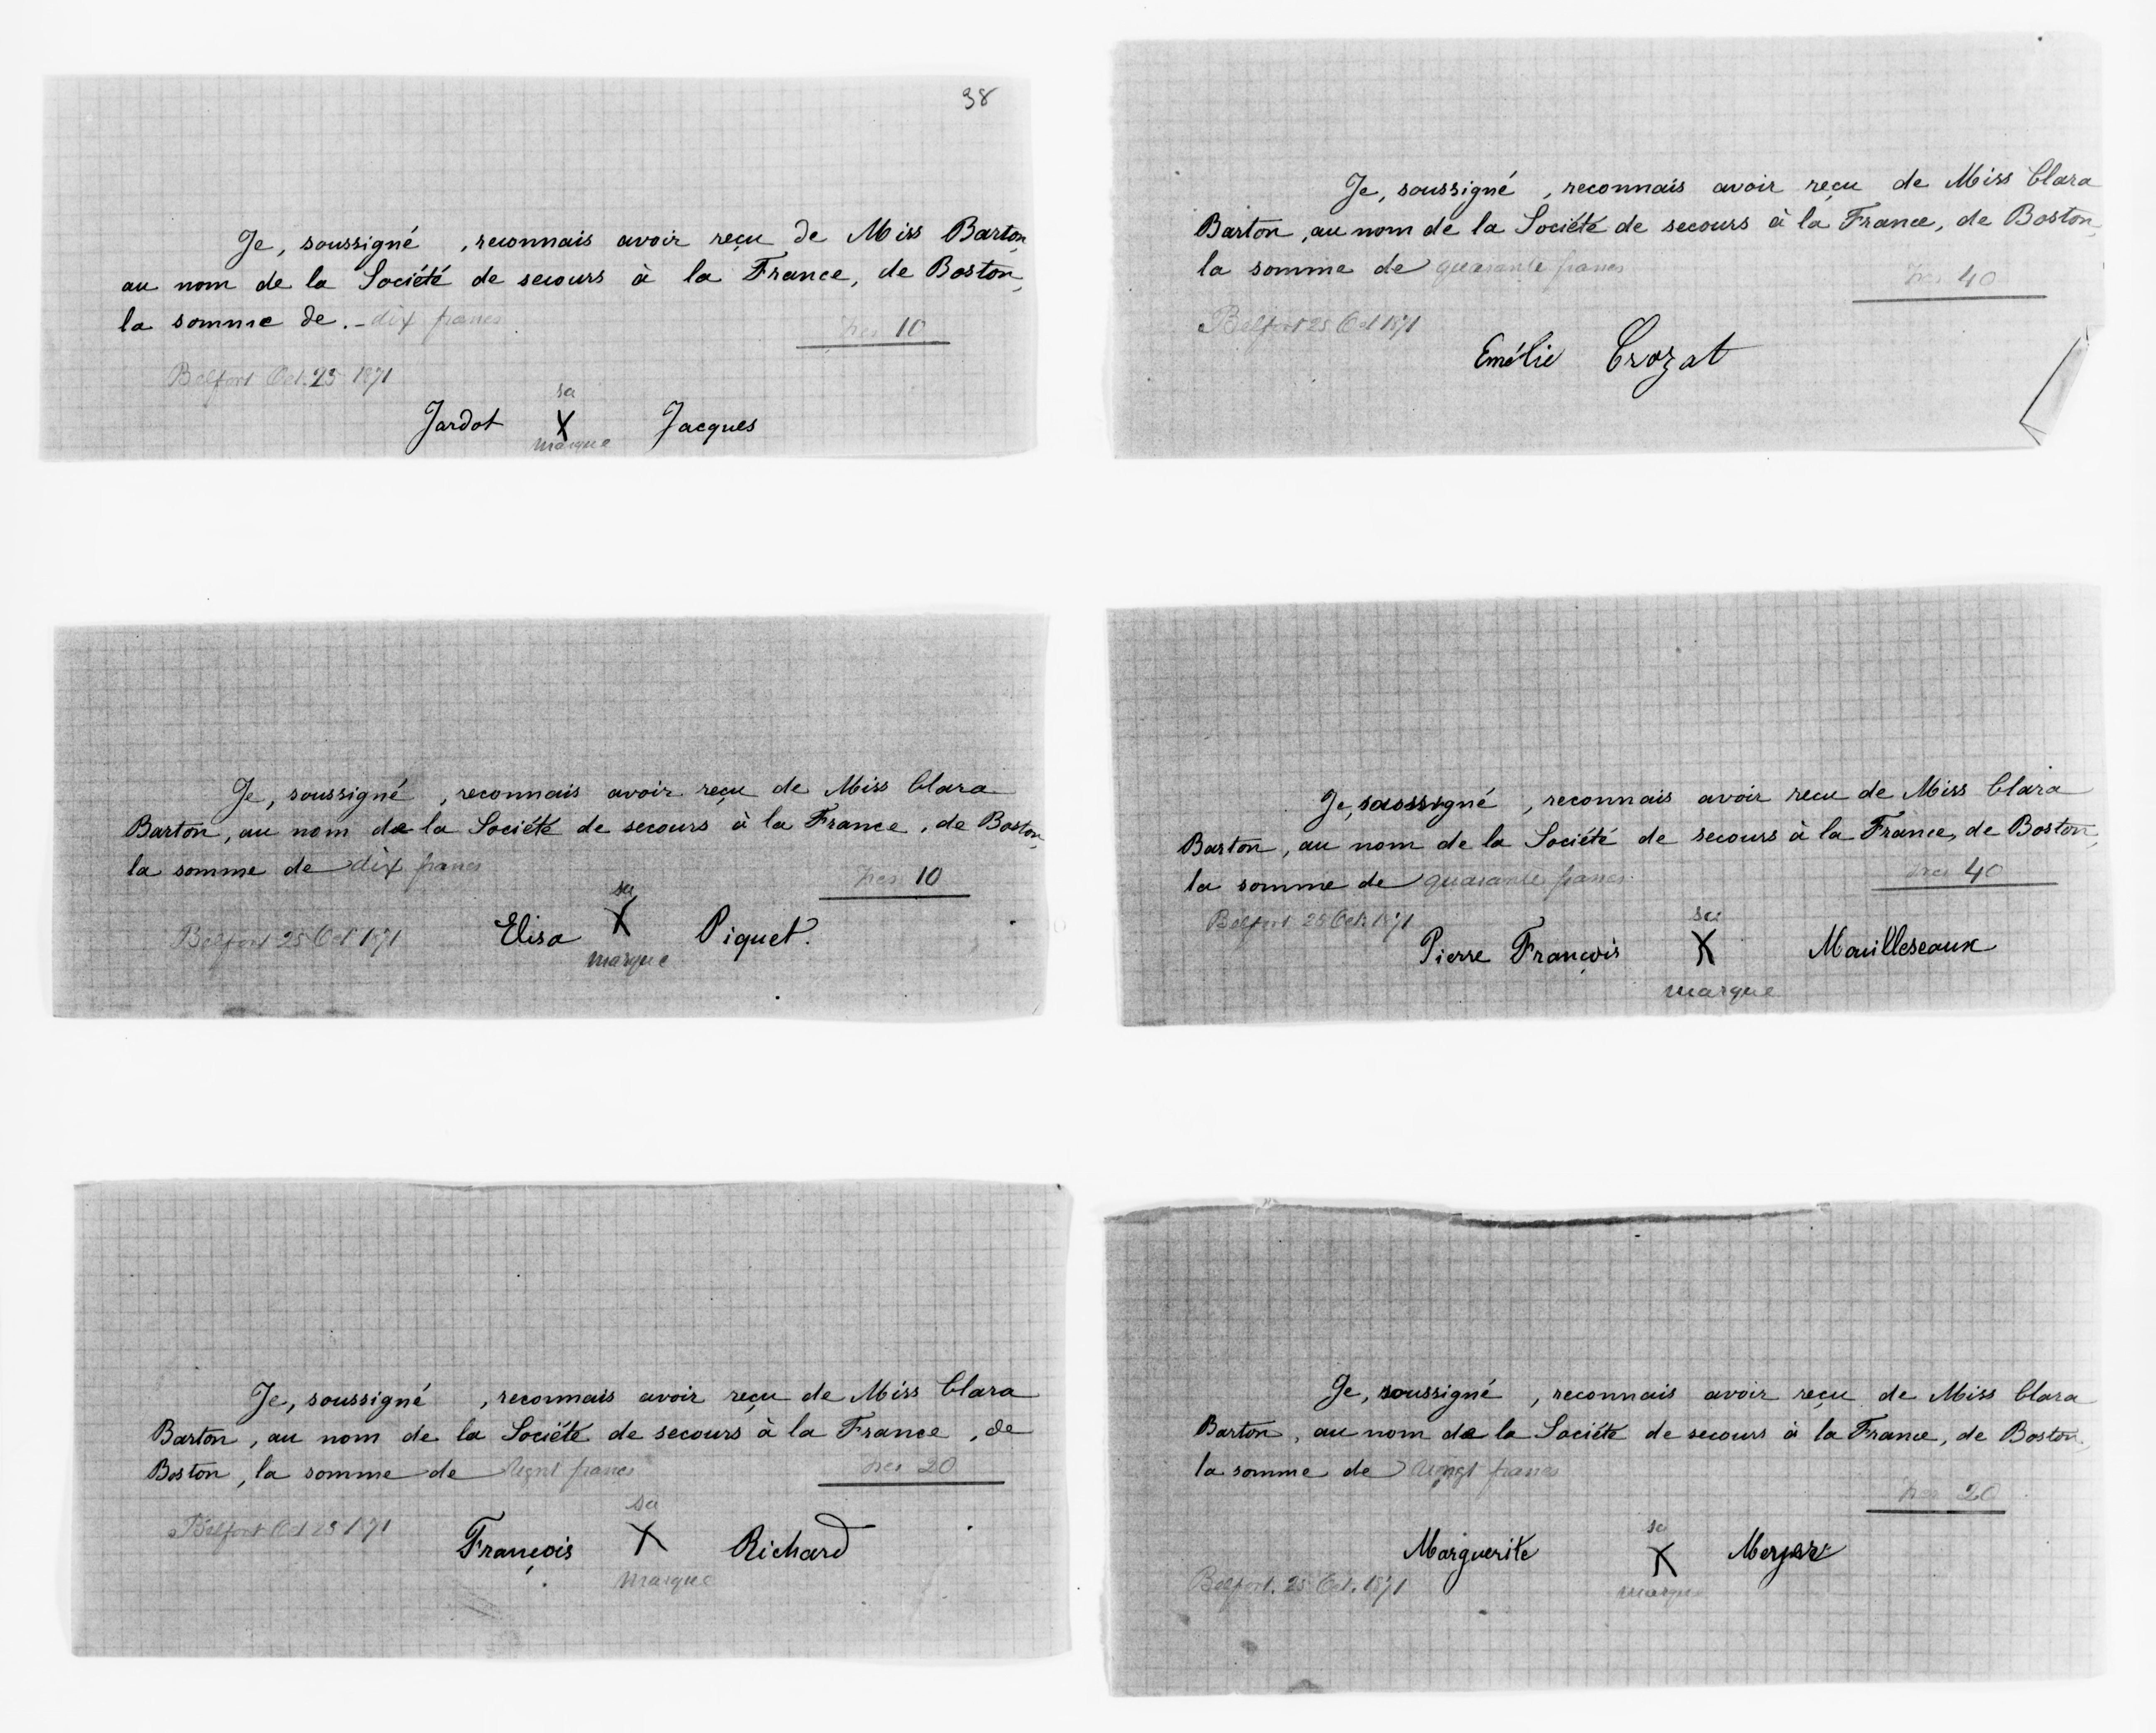 38
Je, soussigné , reconnais avoir reçu de Miss Barton,
au nom de la Société de secours à la France, de Boston,
la somme de. - dix francs
frcs 10
Belfort Oct. 25 1871
sa
Jardot X Jacques
marque
Je, soussigné , reconnais avoir reçu de Miss Clara
Barton, au nom de la Société de secours à la France, de Boston,
la somme de quarante francs
frcs 40
Belfort 25 Oct 1871
Emélie Crozat
Je, soussigné , reconnais avoir reçu de Miss Clara
Barton, au nom de la Société de secours à la France, de Boston,
la somme de dix francs
frcs 10
sa
Belfort 25 Oct 1871 Elisa X Piquet.
marque
Je, soussigné , reconnais avoir recu de Miss Clara
Barton, au nom de la Société de secours à la France, de Boston,
la somme de quarante francs
frcs 40
Belfort 25 Oct. 1871
sa
Pierre François X Mouilleseaux
marque
Je, soussigné , reconnais avoir reçu de Miss Clara
Barton, au nom de la Société de secours à la France, de
Boston, la somme de vingt francs
frcs 20
Belfort Oct 25 1871
sa
François X Richard
marque
Je, soussigné , reconnais avoir reçu de Miss Clara
Barton, au nom de la Société de secours à la France, de Boston,
la somme de vingt francs
frcs 20
sa
Marguerite X
marque
Belfort. 25 Oct. 1871